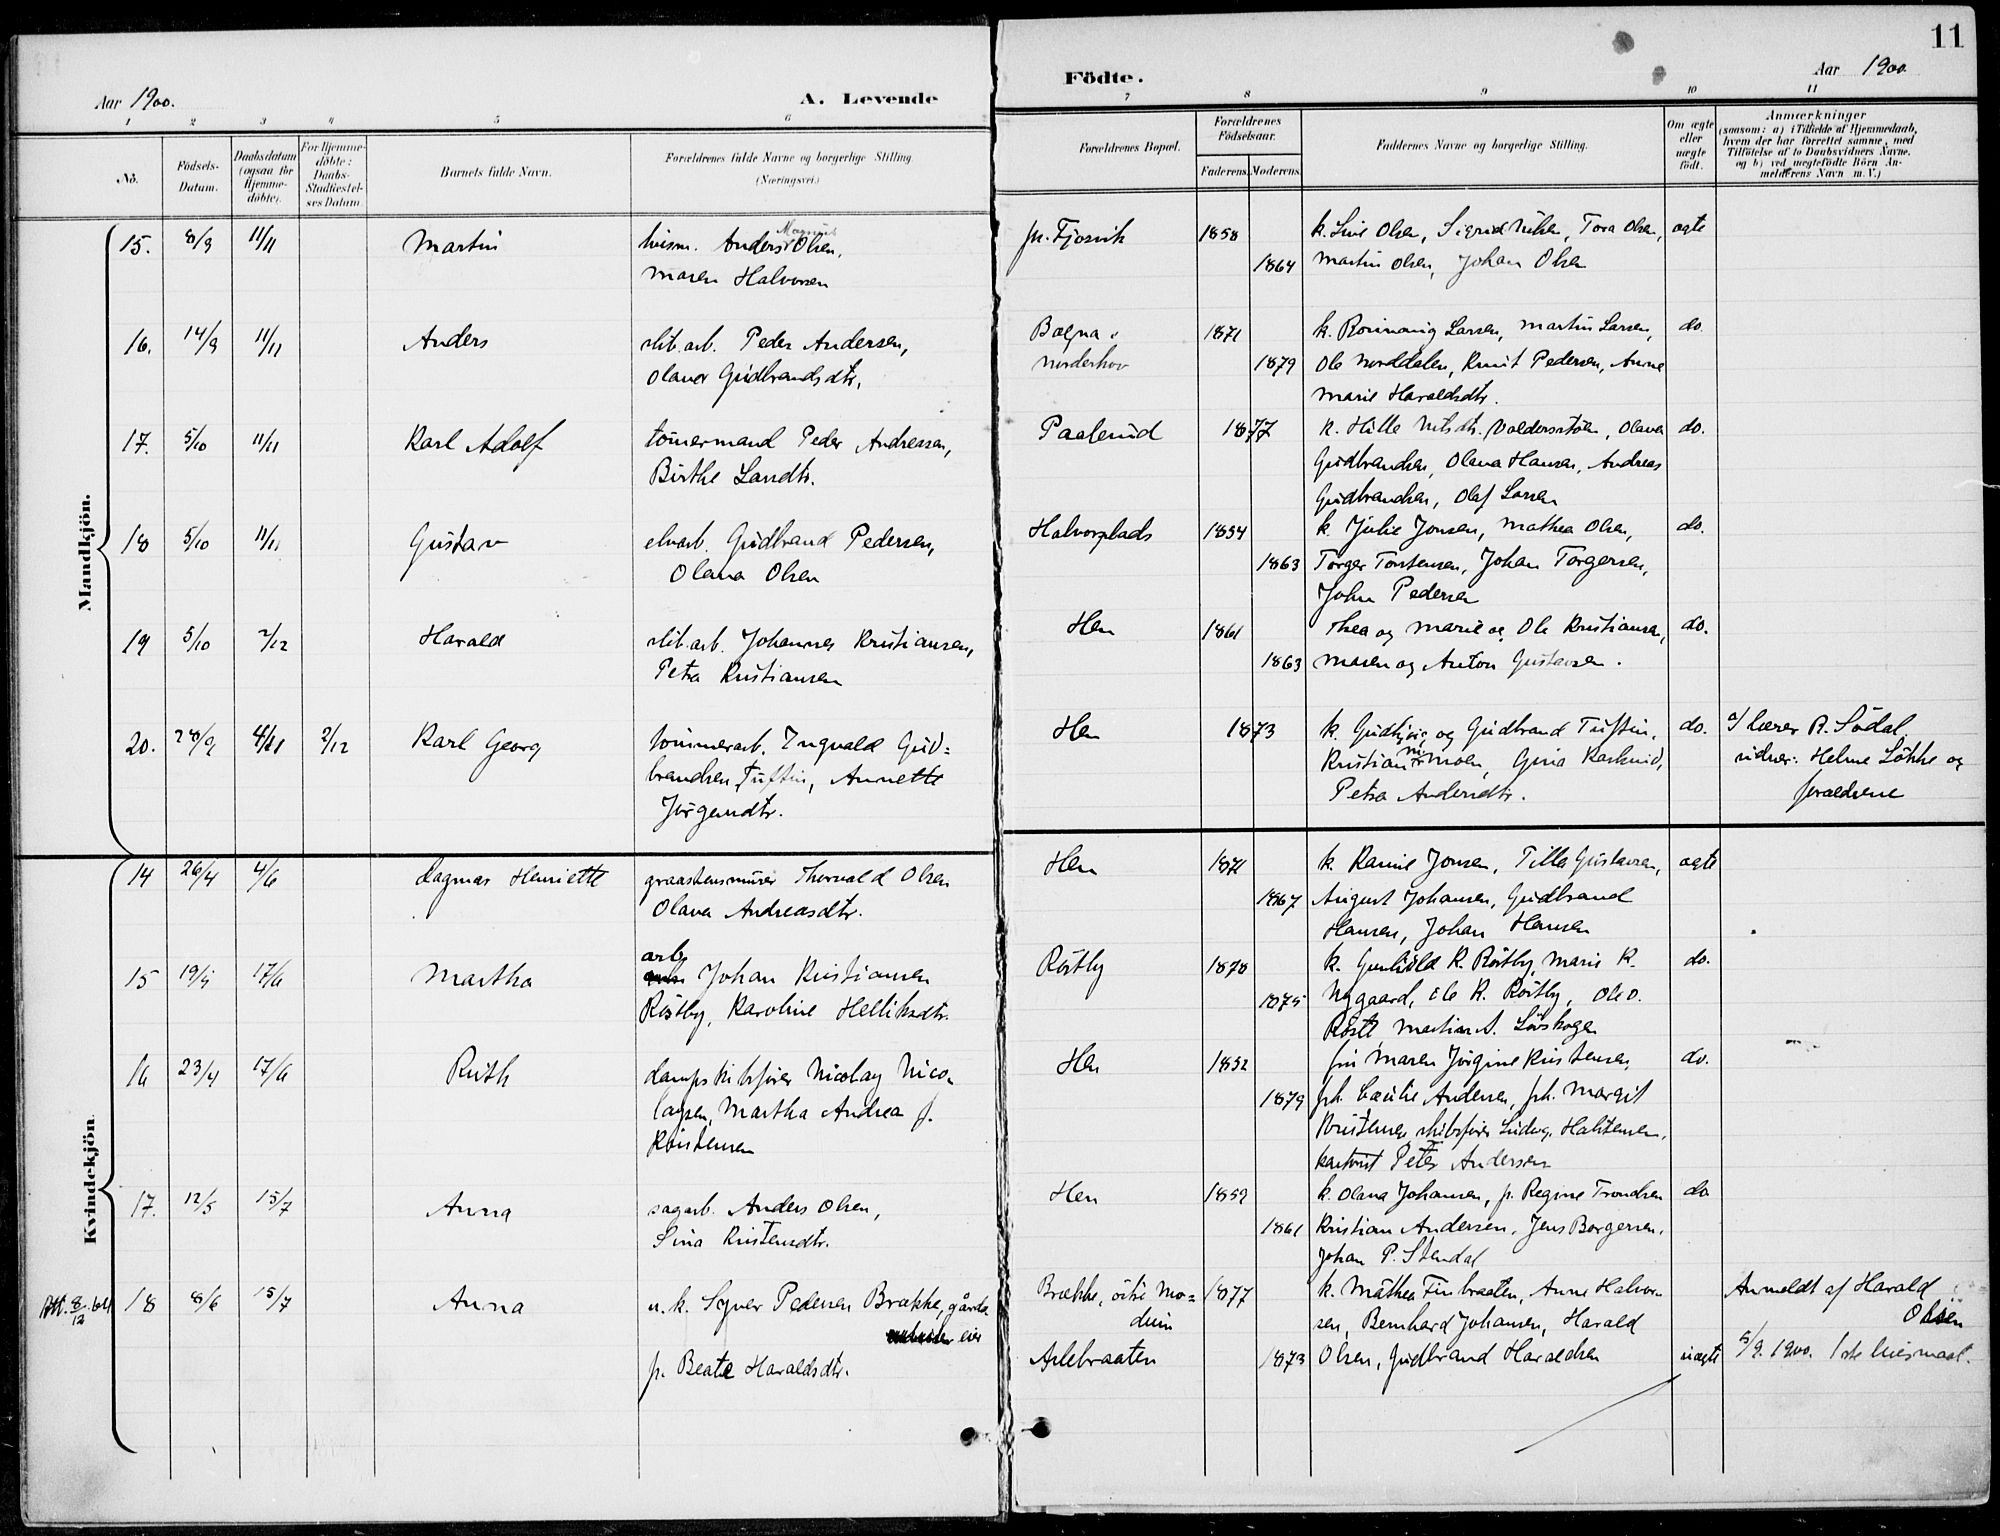 11
Aar 1900.
A. Levende
Födte.
Aar 1900.
1 2 3 4 5 6 7 8 9 10 11
No.
Födsels-Datum.
Daabsdatum (ogsaa for Hjemme-döbte).
For Hjemme-döbte: Daabs-Stadfæstel-ses Datum.
Barnets fulde Navn.
Forældrenes fulde Navne og borgerlige Stilling (Næringsvei.)
Forældrenes Bopæl.
Forældrenes Födselsaar.
Faderens. Moderens.
Faddernes Navne og borgerlige Stilling.
Om ægte eller uægte födt.
Anmærkninger (saasom: a) i Tilfælde af Hjemmedaab, hvem der har forrettet samme, med Tilföielse af to Daabsvidners Navne, og b) ved uægtefödte Börn Anmelderens Navn m. V.)
Mandkjön.
15. 8/9 11/11 Martin husm. Anders Magnus Olsen, 1858 k. Live Olsen, Sigrid Nilsen, Tora Olsen, ægte
Maren Halvorsen 1864 Martin Olsen, Johan Olsen
16. 14/9 11/11 Anders slib.arb. Peder Andersen, Bægna i 1871 k. Rönnaug Larsen, Martin Larsen, do.
Olaves Gudbrandsdtr. Norderhov 1879 Ole Norddalen, Knut Pedersen, Anne
Marie Haraldsdtr.
17. 5/10 11/11 Karl Adolf tömmermand Peder Andreassen, Paalerud 1877 k. Hille Nilsdtr. Valdersstöen, Olava do.
Birthe Larsdtr. Gudbrandsen, Olava Hansen, Andreas
Gudbrandsen, Olaf Larsen
18 5/10 11/11 Gustav elvarb. Gudbrand Pedersen, Halvorplads 1854 k. Julie Jonsen, Mathea Olsen, do.
Olava Olsen 1863 Torger Torstensen, Johan Torgersen,
John Pedersen
19 5/10 2/12 Harald slib.arb. Johannes Kristiansen, Hen 1861 Thea og Marie og Ole Kristiansen, do.
Petra Kristiansen 1863 Maren og Anton Gustavsen.
20. 28/9 4/11 2/12 Karl Georg tömmerarb. Ingvald Gud- Hen 1873 k. Gudbjör og Gudbrand Tuftin, do. a/ lærer B. Södal.
brandsen Tuftin, Annette Kristian Moen, Gina Karlsrud, vidner: Helene Løkke og
Jörgensdtr. Petra Andersdtr. forældrene
Kvindekjön
14 26/4 4/6 Dagmar Henriette graastensmurer Thorvald Olsen Hen 1871 k. Karine Jonsen, Tilla Gustavsen, ægte
Olava Andreasdtr. 1867 August Johansen, Gudbrand
Hansen, Johan Hansen
15 17/6 Martha arb. Johan Kristiansen Röstby 1870 k. Gunhild K. Röstby, Marie K. do.
Röstby, Karoline Helliksdtr. 1875 Nygaard, Ole K. Röstby, Ole O.
Martin A. Lövskogen
16 23/4 17/6 Ruth dampskibsförer Nicolay Nico- Hen 1852 fru Maren Jörgine Kristensen, do.
laysen, Martha Andrea f. 1879 frk. Cecilie Andersen, frk. Margit
Kristensen Kristensen, skibsförer Ludvig Halstensen,
Peter Andersen
17. 12/5 15/7 Anna sagarb. Anders Olsen, Hen 1859 k. Olava Johansen, p. Regine Trondsen do
Sina Kristensdtr. 1861 Kristian Andersen, Jens Borgersen,
Johan P. Stendal
Att. 8/12.64 18 8/6 15/7 Anna u. k. Syver Pedersen Brække, gårds Brække, östre Mo- 1877 k. Mathea Finbraaten, Anne Halvor- Anmeldt af Harald
eier dum sen, Bernhard Johansen, Harald Olsen
p. Beate Haraldsdtr. Aslebraaten 1873 Olsen, Gudbrand Haraldsen uægte 5/9. 1900. 1ste leiermaal.